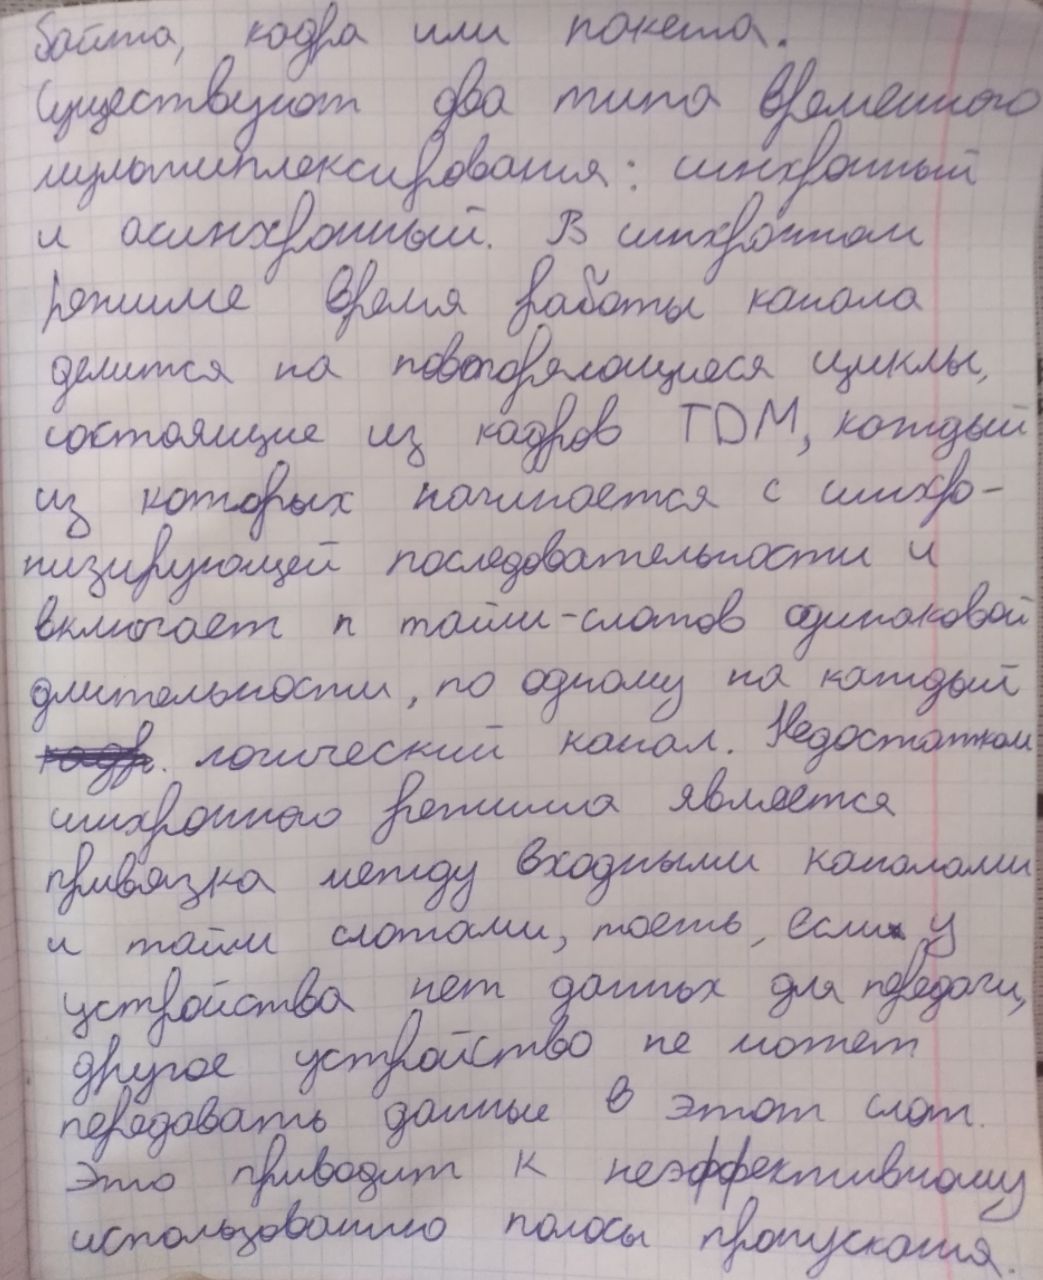 байта, кадра или пакета.
Существуют два типа временного
мультиплексирования: синхронный
и асинхронный. В синхронном
режиме время работы канала
делится на повоторяющиеся циклы,
состоящие из кадров TDM, каждый
из которых начинается с синхро-
низирующей последовательности и
включает n тайм-слотов одинаковой
длительности, по одному на каждый
логический канал. Недостатком
синхронного режима является
привязка между входными каналами
и тайм слотами, тоесть, если у
устройства нет данных для передачи,
другое устройство не может
передавать данные в этот слот.
Это приводит к неэффективному
использованию полосы пропускания.